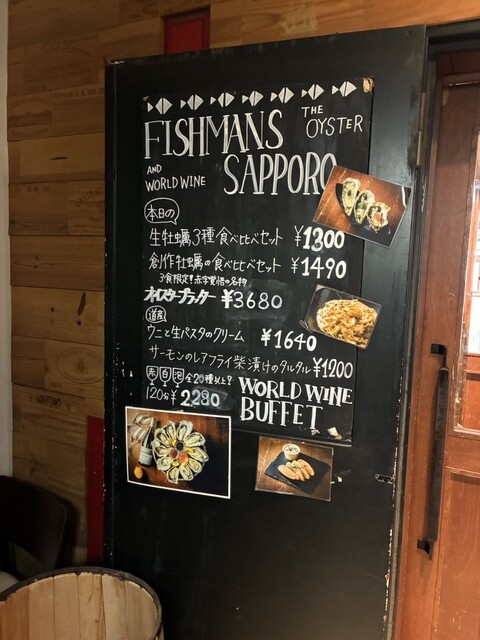 FISHMANS
THE OYSTER
AND
WORLD WINE
SAPPORO
本日の
生牡蠣3種食べ比べセット ¥1300
創作牡蠣の食べ比べセット ¥1490
3食限定!赤字覚悟の名物
オイスタープラッター ¥3680
道産
ウニと生パスタのクリーム ¥1640
サーモンのレアフライ柴漬けのタルタル ¥1200
赤 白 泡 全20種以上?
120分¥2,280
WORLD WINE
BUFFET